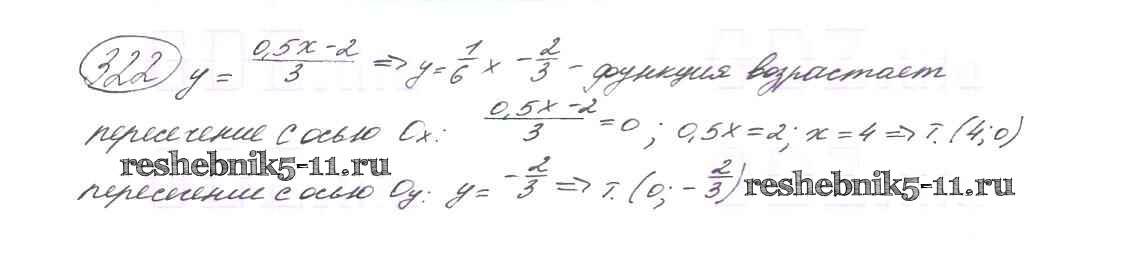 322 y = (0,5x - 2)/3 => y = 1/6 x - 2/3 - функция возрастает
пересечение с осью Ox: (0,5x - 2)/3 = 0 ; 0,5x = 2; x = 4 => т. (4; 0)
reshebnik5-11.ru
пересечение с осью Oy: y = -2/3 => т. (0; -2/3) reshebnik5-11.ru